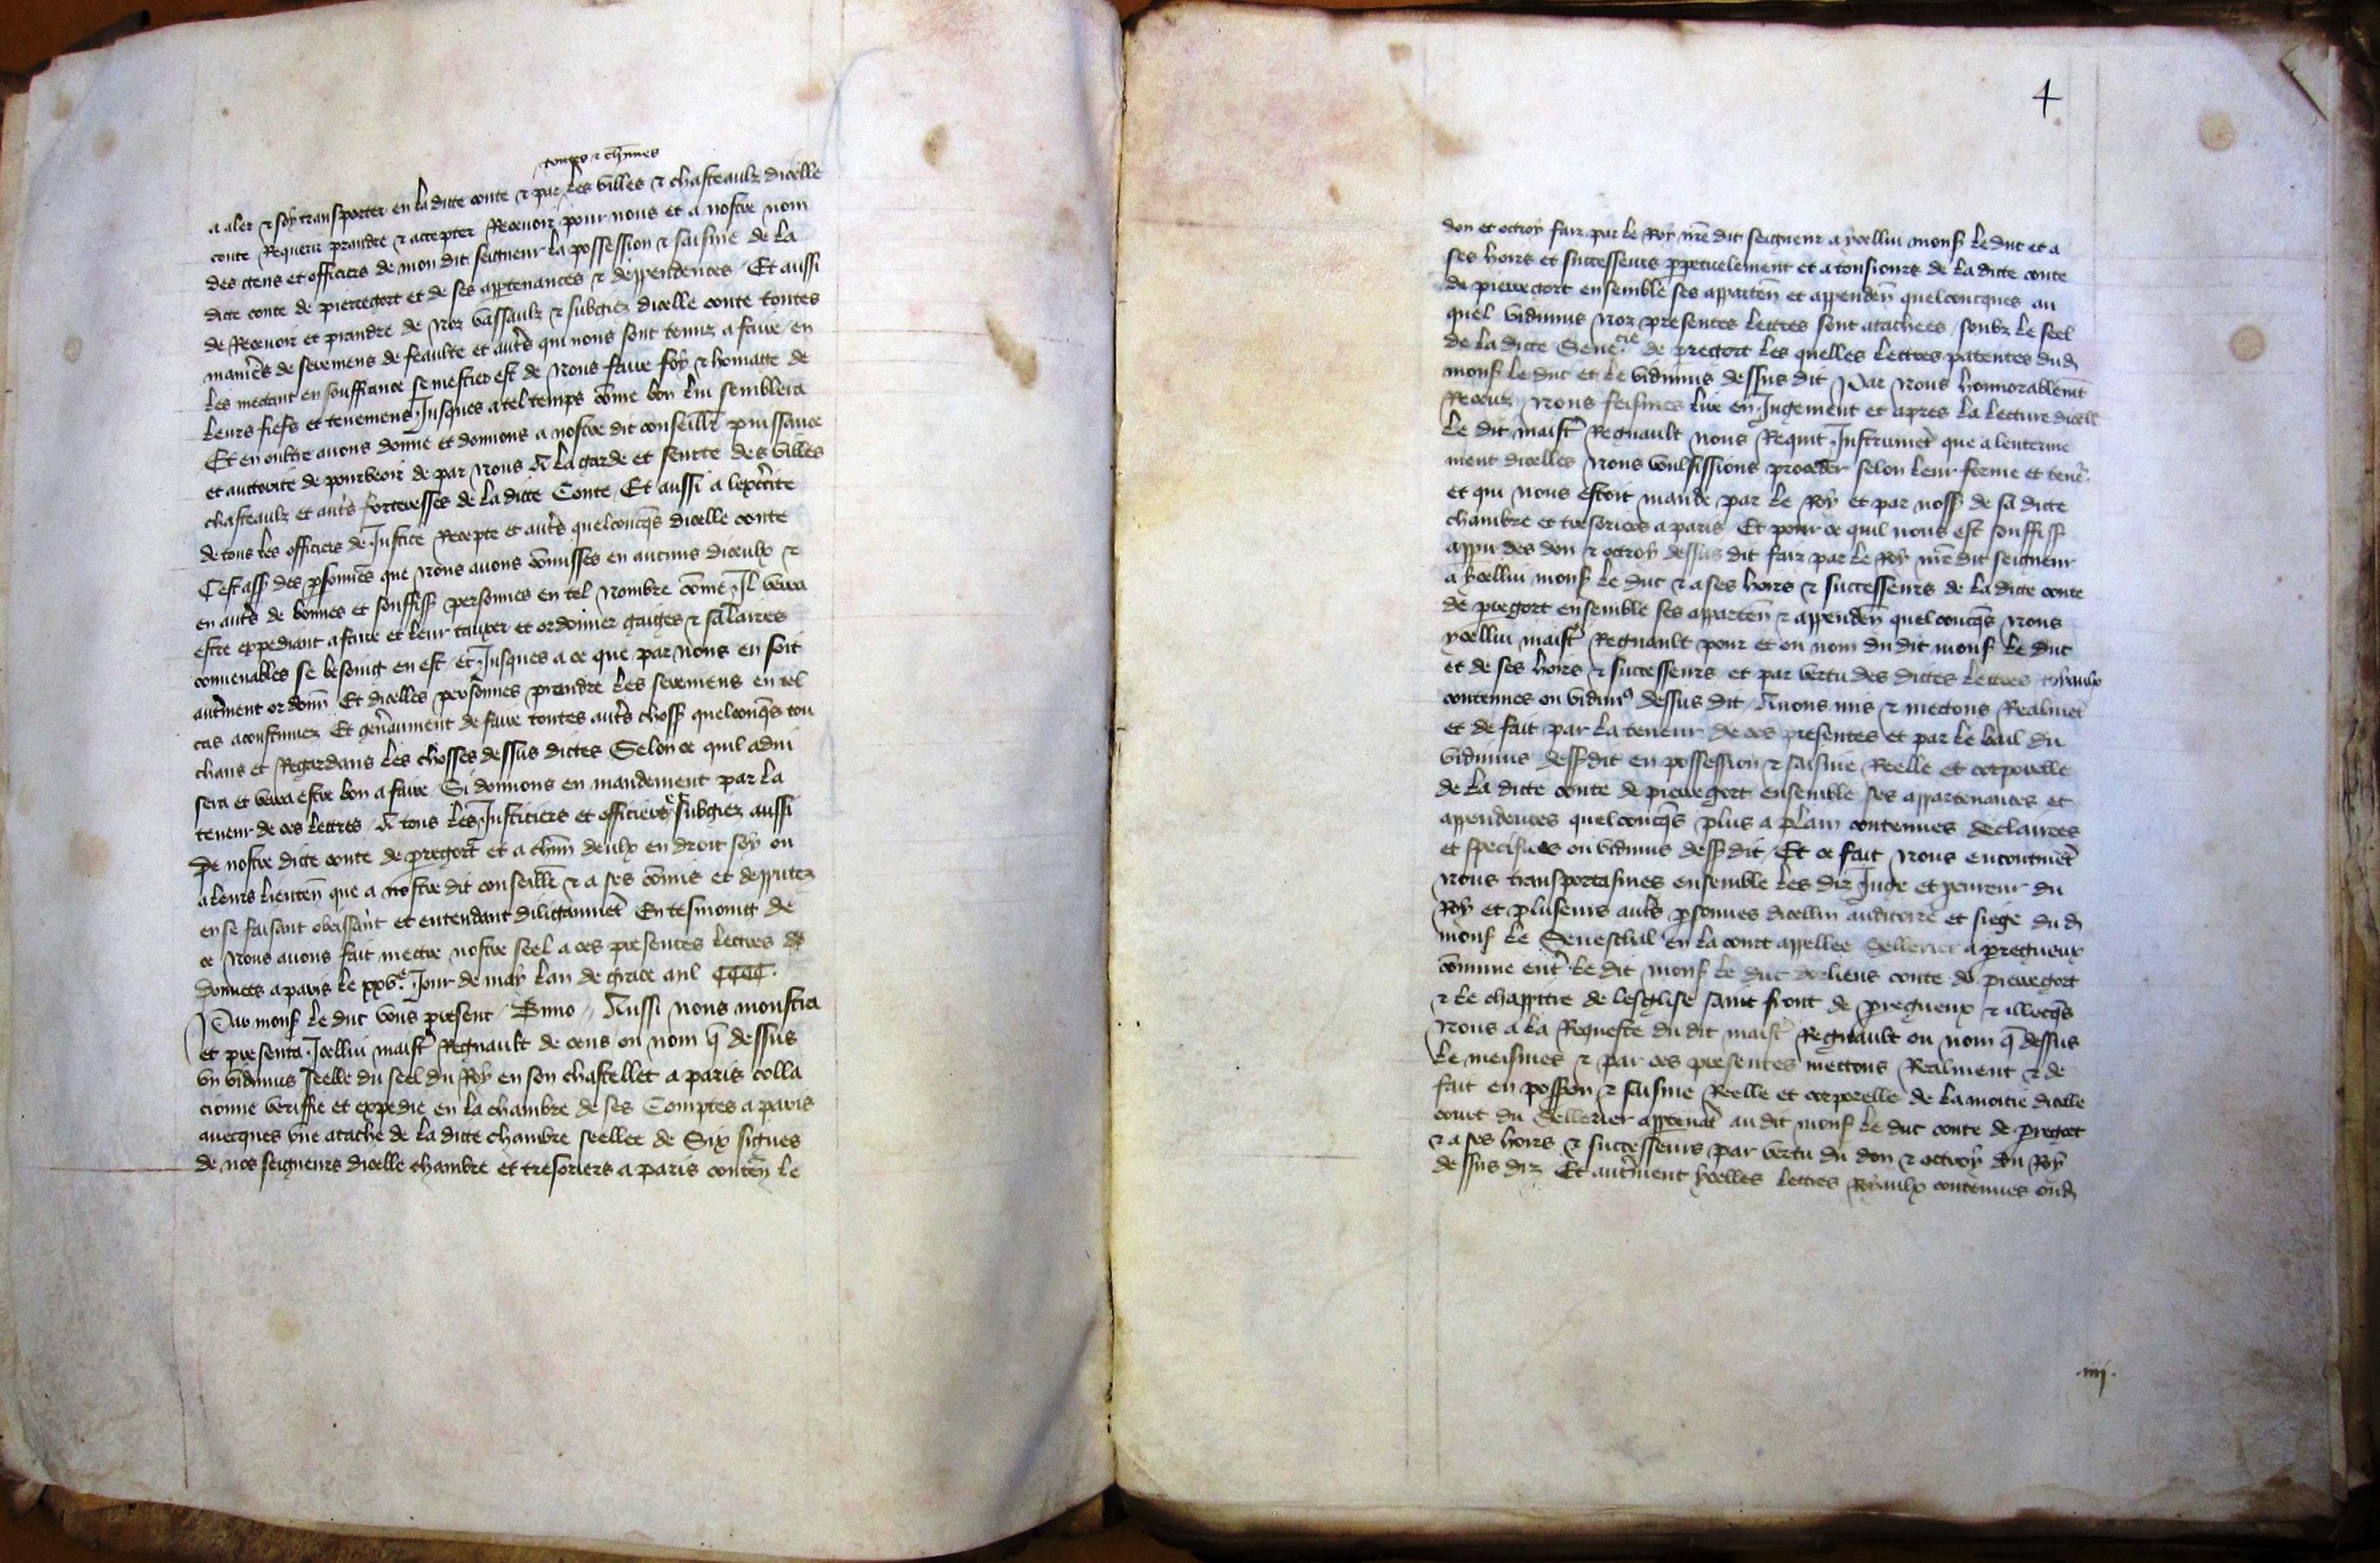 toutes & chūnes
a aler & soy transporter en la dicte conte & par les villes & chasteaulx dicelle
conte Requerir prandre & accepter Recevoir pour nous et a nostre nom
des gens et officiers de mon dit seigneur la possession & saisine de la
dicte conte de pierregort et de ses appartenances & deppendences Et aussi
de Recevoir et prandre de Noz vassaulx & subgiez dicelle conte toutes
manie's de seremens de feaulte et aut's qui nous sont tenuz a faire en
les mectant en souffrance se mestier est de Nous faire foy & homaige de
leurs fiefs et tenemens Jusques a tel temps cōme bon lui semblera
Et en oultre avons donne et donnons a nostre dit conseill' puissance
et auctorite de pourveoir de par Nous A la garde et seurte des villes
chasteaulx et aut's forteresses de la dicte Conte Et aussi a lex'cite
de tous les officiers de Justice Recepte et aut's quelconq's dicelle conte
Cest ass des p'sonnes que Nous avons cōmisses en aucuns diceulx &
en aut's de bonnes et souffiss personnes en tel Nombre cōme Il verra
estre expediant a faire et leur tauxer et ordonner gaiges & salaires
convenables se besoing en est et Jusques a ce que par nous en soit
aut'ment ordonn Et dicelles personnes prendre les seremens en tel
cas acoustumez Et gen'aument de faire toutes aut's choss quelconq's tou
chans et Regardans les chosses dessus dictes Selon ce quil advi
sera et verra estre bon a faire Si donnons en mandement par la
teneur de ces lettres A tous les Justiciers et officiers & subgiez aussi
De nostre dicte conte de p'regort et a chūn deulx en droit soy ou
a leurs lieuten que a nostre dit conseill' & a ses cōmis et depputez
en ce faisant obeissant et entendant diligaumēt En tesmoing de
ce Nous avons fait mectre nostre seel a ces presentes lectres
donnees a paris le xxv.e Jour de may lan de grace mil CCCC.
Par mons le duc vous present Buno // Aussi nous monstra
et presenta Icellui maist' Regnault de cens ou nom q' dessus
vn vidimus seelle du seel du Roy en son chastellet a paris colla
cionne veriffie et expedie en la chambre de ses Comptes a paris
avecques vne atache de la dicte chambre seellee de Six signes
de nos seigneurs dicelle chambre et tresoriers a paris conten le
4
don et octroy fait par le Roy n're dit seigneur a ycellui mons le duc et a
ses hoirs et successeurs p'petuelement et a tousiours de la dicte conte
de pierregort ensemble ses apparten et appenden quelconcques au
quel vidimus Noz presentes lettres sont atachees soubz le seel
de la dicte Sene.cie de p'regort les quelles lectres patentes dud
mons le duc et le vidimus dessus dit Par Nous honnorablemēt
Receuz Nous feismes lire en Jugement et apres la lecture dicell
le dit maist' Regnault nous Requit Instrumēt que a lenterine
ment dicelles Nous voulsissions proceder selon leur forme et tene'
et qui Nous estoit mande par le Roy et par noss de sa dicte
chambre et tresoriers a paris Et pour ce quil nous est souffiss
appu des don & octroy dessus dit fait par le Roy n're dit seigneur
a ycellui mons le duc & a ses hoirs & successeurs de la dicte conte
de p'regort ensemble ses apparten & appenden quelconq's Nous
ycellui maist' Regnault pour et ou nom du dit mons le duc
et de ses hoirs & successeurs et par vertu des dictes lectres royaulx
contenues ou vidim9 dessus dit Avons mis & mectons Realmēt
et de fait par la teneur de ces presentes et par le bail du
vidimus dess dit en possession & saisine Reelle et corporelle
de la dicte conte de pierregort ensemble ses appartenances et
apendences quelconq's plus a plain contenues declairees
et specifiees ou vidimus dess dit Et ce fait Nous encontinēt
Nous transportasmes ensemble les diz Juge et procureur du
Roy et pluseurs aut's p'sonnes dicellui auditoire et siege du d
mons le Seneschal en la court appellee Sellerier a p'regueux
cōmune ent' le dit mons le duc dorliens conte de pierregort
& le chappitre de lesglise saint front de p'regueux & illecq's
Nous a la Requeste du dit maist' Regnault ou nom q' dessus
le meismes & par ces presentes mectons Realment & de
fait en possion & saisine Reelle et corporelle de la moitie dicelle
court du Sellerier apptenāt au dit mons le duc conte de p'regort
& a ses hoirs & successeurs par vertu du don & octroy du Roy
dessus diz Et aut'ment ycelles lectres Royaulx contenues oud
.iiij.